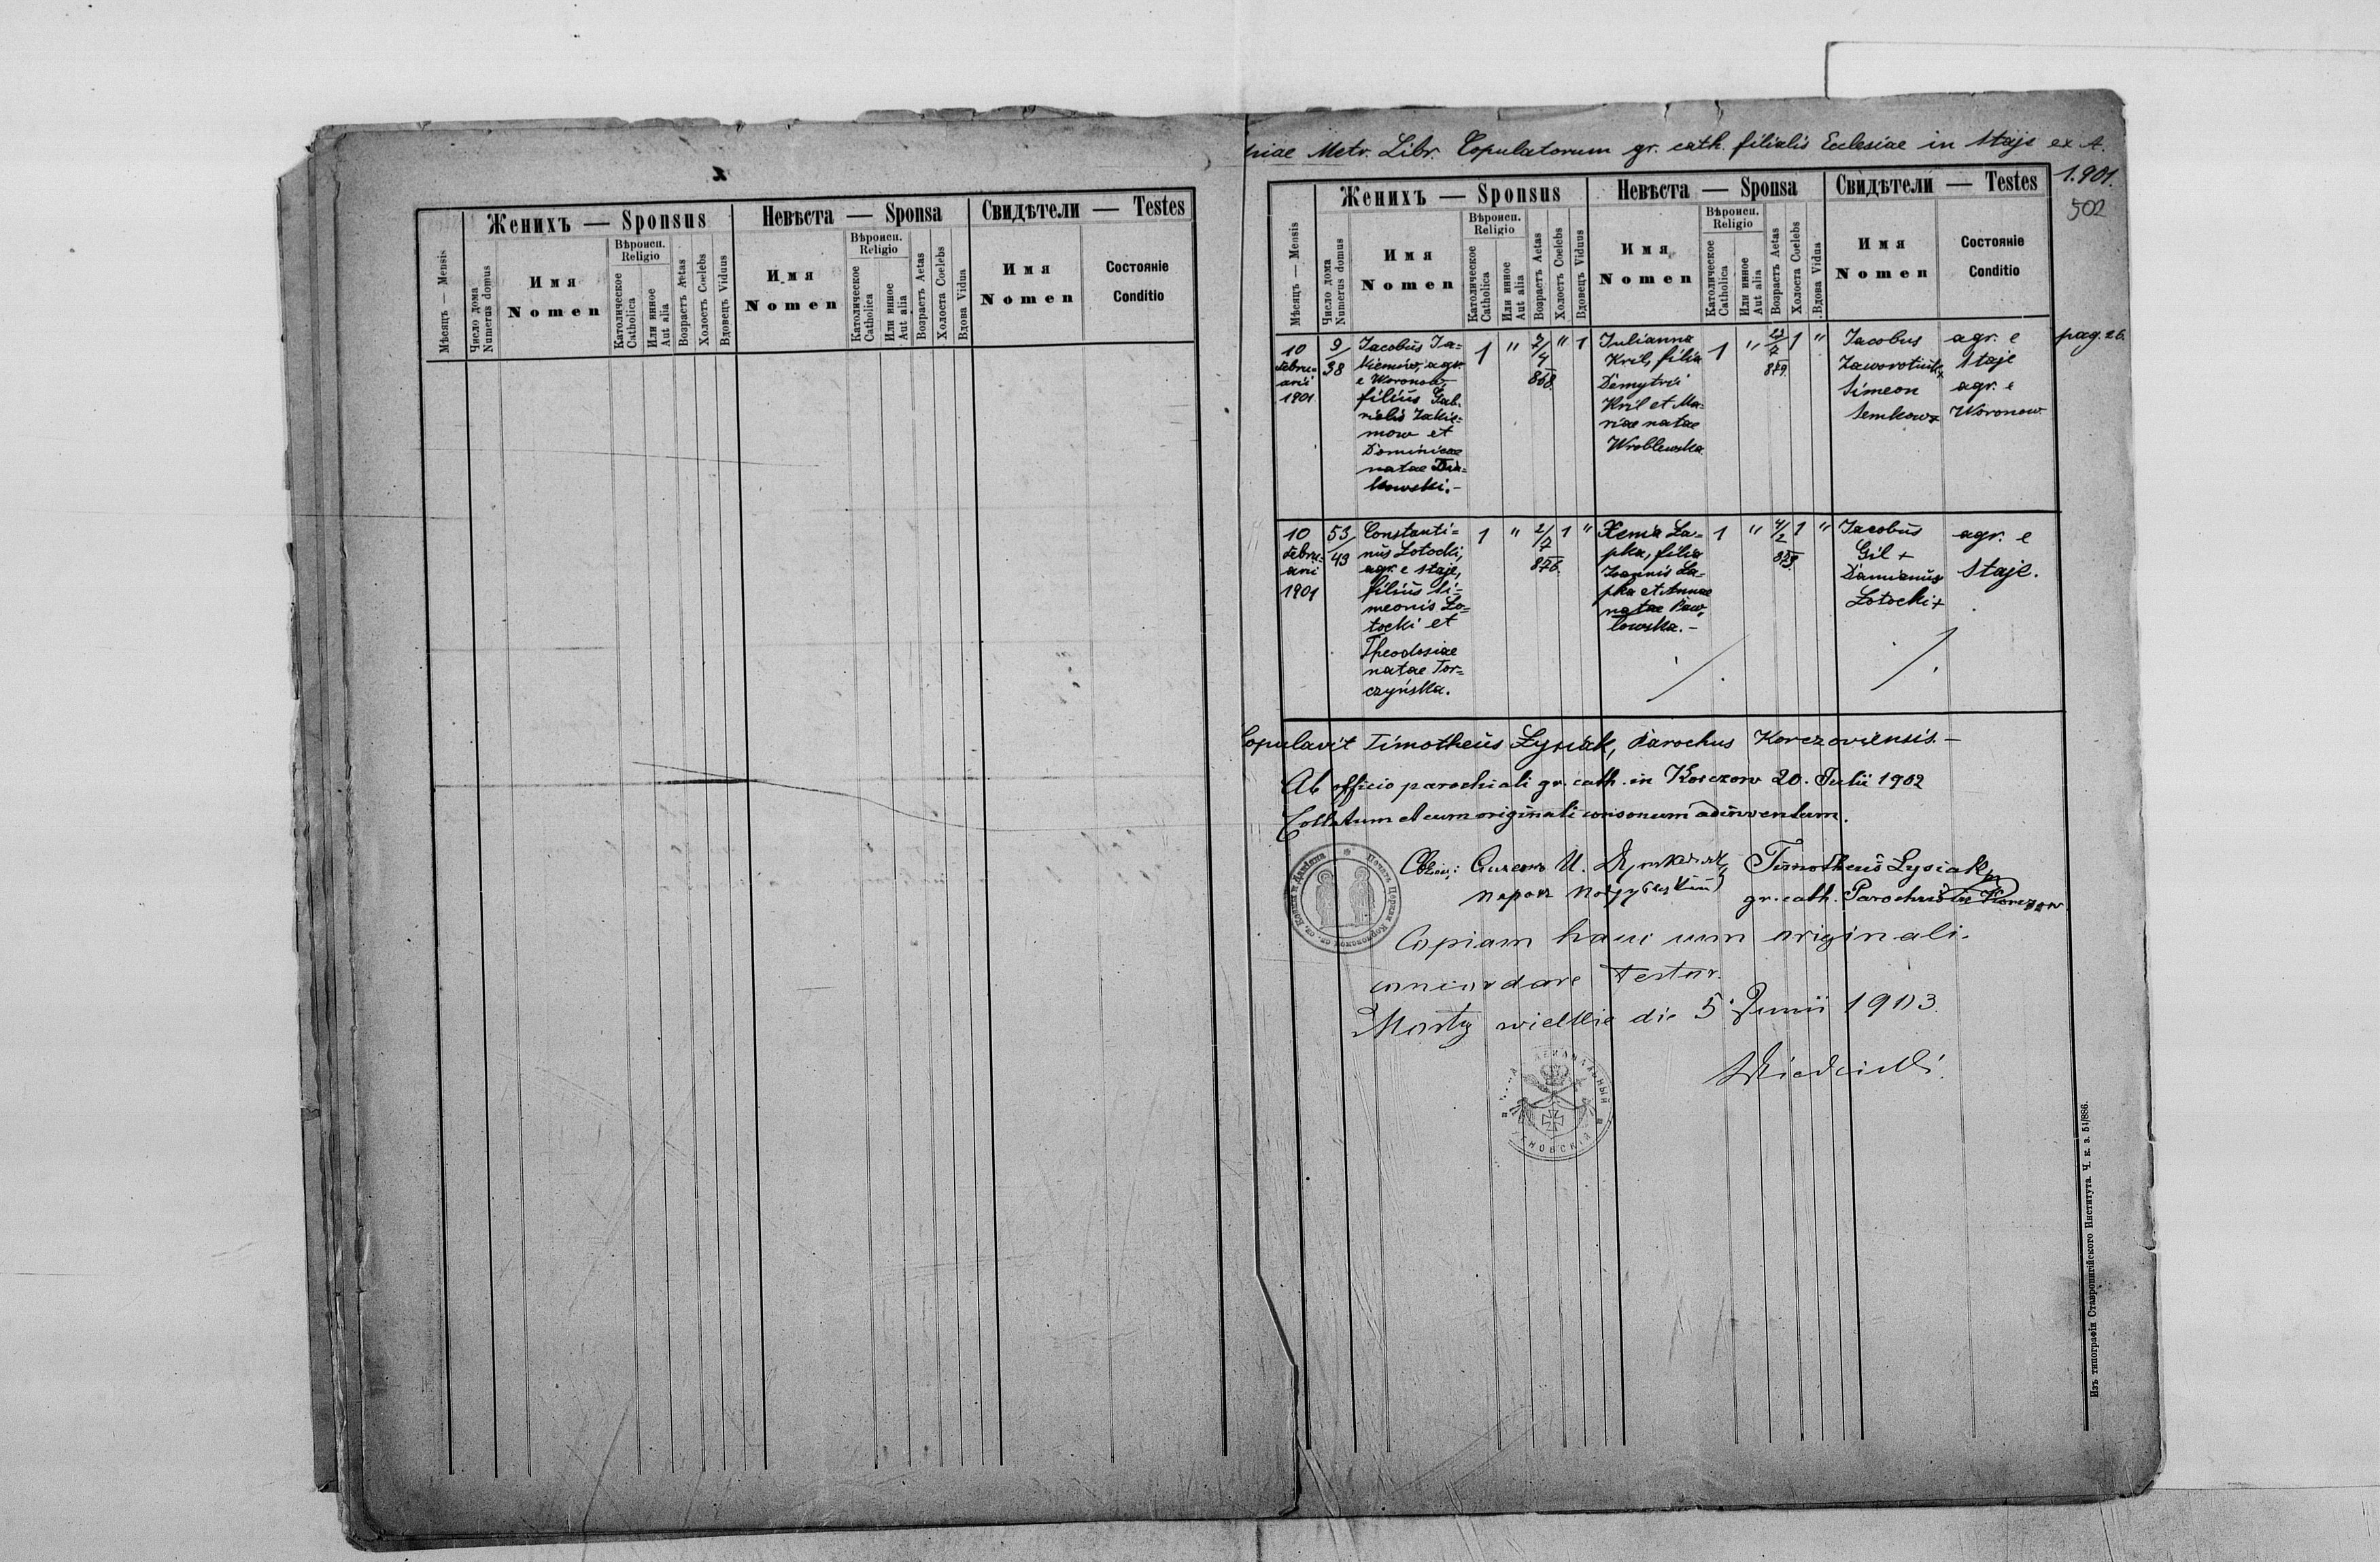 Женихъ — Sponsus
Невѣста — Sponsa
Свидѣтели — Testes
Мѣсяцъ — Mensis
Число дома
Numerus domus
Имя
Nomen
Вѣроисп.
Religio
Католическое
Catholica
Или иное
Aut alia
Возрастъ Aetas
Холостъ Coelebs
Вдовецъ Viduus
Имя
Nomen
Вѣроисп.
Religio
Католическое
Catholica
Или иное
Aut alia
Возрастъ Aetas
Холоста Coelebs
Вдова Vidua
Имя
Nomen
Состояніе
Conditio
Metr. Libr. Copulatorum gr. cath. filialis Ecclesiae in Staje ex A.
1.901.
502
Женихъ — Sponsus
Невѣста — Sponsa
Свидѣтели — Testes
Мѣсяцъ — Mensis
Число дома
Numerus domus
Имя
Nomen
Вѣроисп.
Religio
Католическое
Catholica
Или иное
Aut alia
Возрастъ Aetas
Холостъ Coelebs
Вдовецъ Viduus
Имя
Nomen
Вѣроисп.
Religio
Католическое
Catholica
Или иное
Aut alia
Возрастъ Aetas
Холоста Coelebs
Вдова Vidua
Имя
Nomen
Состояніе
Conditio
10
Febru=
arii
1901
9/
38
Jacobus Ja=
kiemów, agr.
e Woronow
filius Gab=
rielis Jakie=
mow et
Dominicae
natae
kowski.—
1
"
2/
4
868.
"
1
Julianna
Kril, filia
Demytrii
Kril et Ma=
riae natae
Wroblewska
1
"
879.
1
"
Jacobus
Simeon
Semkow +
agr. e
Staje
agr. e
Woronow
pag. 26.
10
Febru=
arii
1901
53/
43
Constanti=
nus Lotocki,
agr. e Staje,
filius Si=
meonis Lo=
tocki et
Theodosiae
natae Tor=
czyńska.
1
"
2/
7
876.
1
"
Xenia La=
pka, filia
Joannis La=
pka et Annae
natae Paw=
lowska.—
1
"
4/
2
1
"
Jacobus
Gil +
Damianus
Lotocki +
agr. e
Staje.
Copulavit Timotheus Lysiak, Parochus Korczoviensis.—
Ab officio parochiali gr. cath. in Korczow 20. Julii 1902
Collatum et cum originali consonum adinventum.
Timotheus Lysiak
gr. cath. Parochus in Korczow
Copiam hanc cum originali
concordare testor.
Mosty wielkie die 5 Junii 1903
Изъ типографіи Ставропигійского Института. Ч. к. з. 51/886.